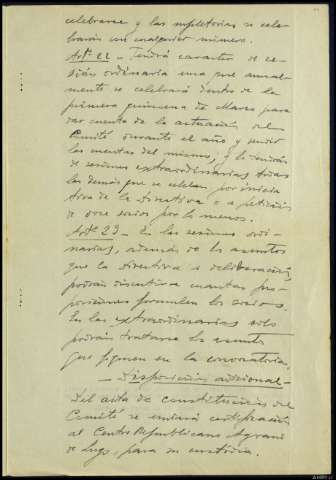 celebrarse y las supletorias se cele-
brarán con cualquier número.
Artº 22 - Tendrá caracter de se-
sión ordinaria una que anual-
mente se celebrará dentro de la
primera quincena de Marzo para
dar cuenta de la actuación del
Comité durante el año y rendir
las cuentas del mismo, y lo tendrán
de sesiones extraordinarias todas
las demás que se celebren por inicia-
tiva de la Directiva o a petición
de doce socios por lo menos.
Artº 23 - En las sesiones ordi-
narias, además de los asuntos
que la directiva a deliberación
podrán discutirse cuantas pro-
posiciones formulen los socios.
En las extraordinarias solo
podrán tratarse los asuntos
que figuren en la convocatoria.
- Disposición adicional -
Del acta de constitución del
Comité se enviará certificación
al Centro Republicano Agrario
de Lugo para su custodia.